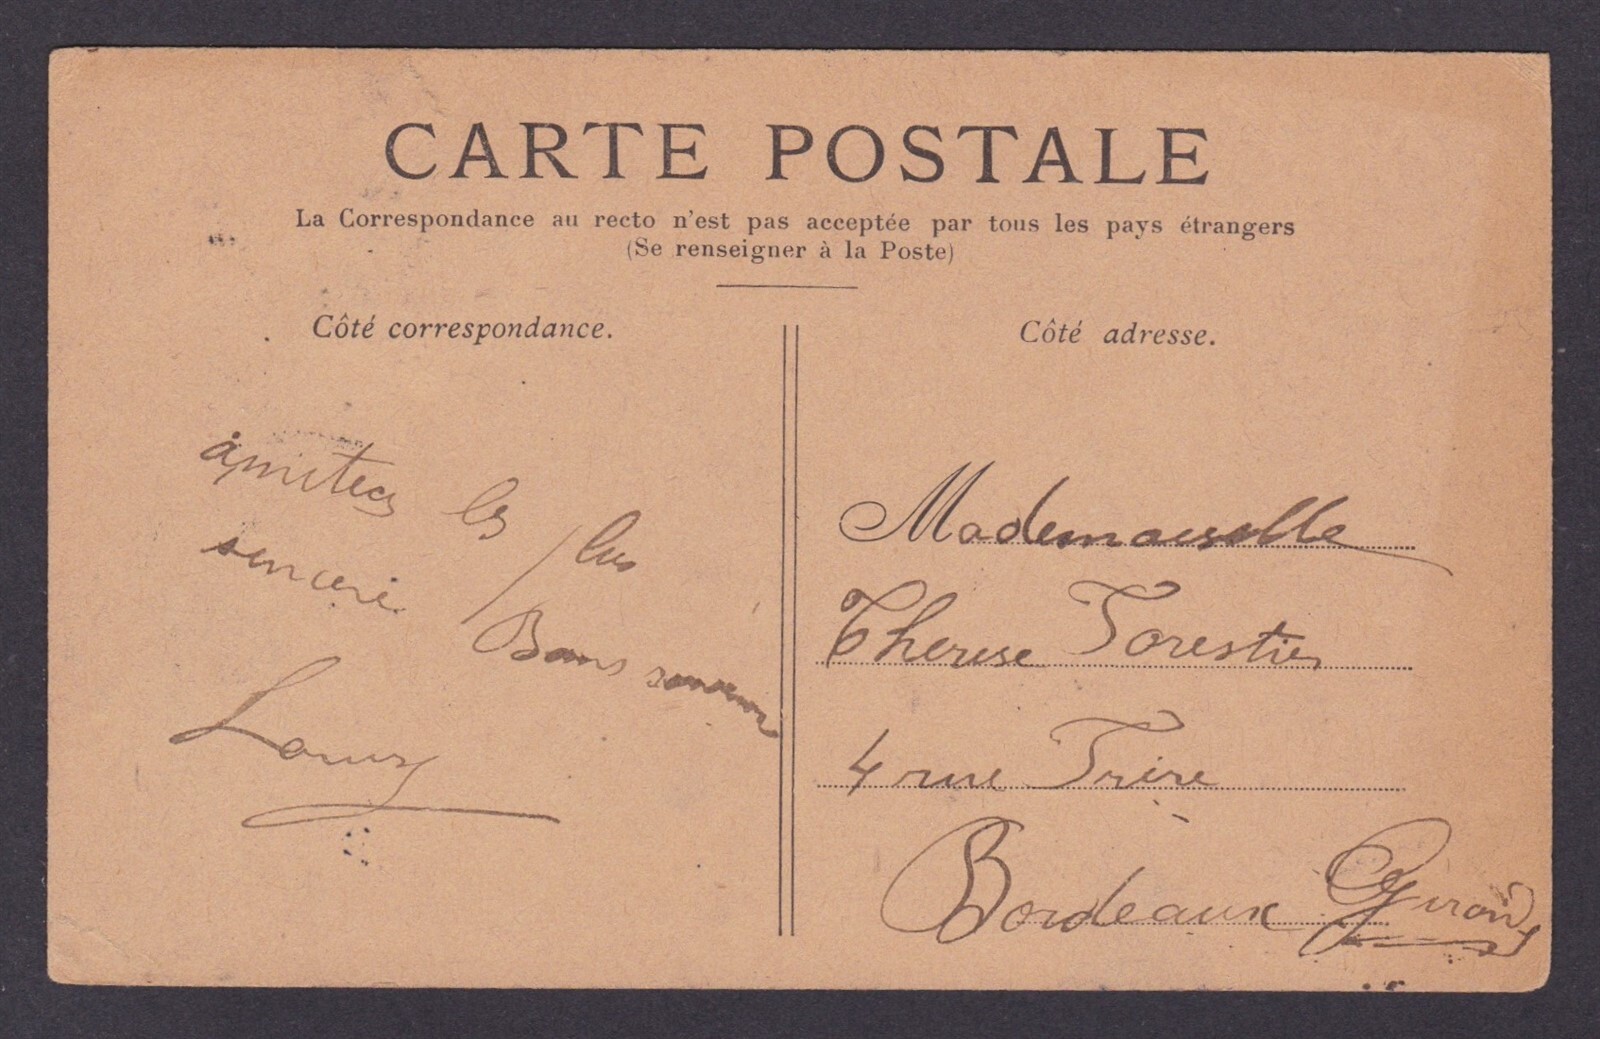 CARTE POSTALE
La Correspondance au recto n'est pas acceptée par tous les pays étrangers
(Se renseigner à la Poste)
Côté correspondance.
Côté adresse.
amitiees les plus
sincere
Bons
Mademoiselle
Therese Forestier
4 rue
Bordeaux Gironde